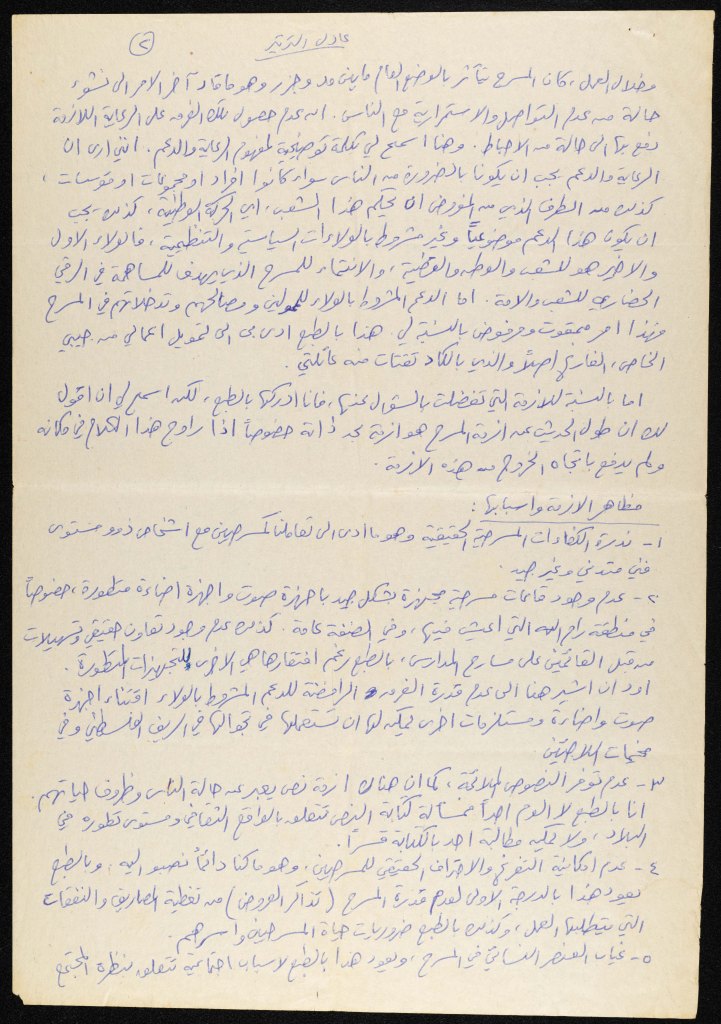 عادل الترتير
(٢)
وخلال العمل، كان المسرح يتأثر بالوضع العام ما بين مد وجزر وهو ما قاد آخر الامر الى نشوء
حالة من عدم التواصل والاستمرارية مع الناس. ان عدم حصول تلك الفرق على الرعاية اللازمة
دفع بها الى حالة من الاحباط. وهنا اسمح لي بكلمة توضيحية لمفهوم الرعاية والدعم. انني ارى ان
الرعاية والدعم يجب ان يكونا بالضرورة من الناس سواء كانوا افراد او مجموعات او مؤسسات،
كذلك من الطرف الذي من المفروض ان يحكم هذا الشعب، اي الحركة الوطنية، كذلك يجب
ان يكون هذا الدعم موضوعياً وغير مشروط بالولاءات السياسية والتنظيمية، فالولاء الاول
والاخير هو للشعب والوطن والقضية، والانتماء للمسرح الذي يهدف للمساهمة في الرقي
الحضاري للشعب والامة. اما الدعم المشروط بالولاء للممولين ومصالحهم وتدخلاتهم في المسرح
فهذا امر ممقوت ومرفوض بالنسبة لي. هذا بالطبع ادى بي الى تمويل اعمالي من جيبي
الخاص، الفارغ اصلاً والذي بالكاد تقتات منه عائلتي.
اما بالنسبة للازمة التي تفضلت بالسؤال عنها، فانا ادركها بالطبع، لكن اسمح لي ان اقول
لك ان طول الحديث عن ازمة المسرح هو ازمة بحد ذاته خصوصاً اذا راوح هذا الكلام في مكانه
ولم يدفع باتجاه الخروج من هذه الازمة.
مظاهر الازمة واسبابها:
١- ندرة الكفاءات المسرحية الحقيقية وهو ما ادى الى تعاملنا كمسرحيين مع اشخاص ذوو مستوى
فني متدني وغير جيد.
٢- عدم وجود قاعات مسرحية مجهزة بشكل جيد باجهزة صوت واجهزة اضاءة متطورة، خصوصاً
في منطقة رام الله التي اعيش فيها، وفي الضفة عامة. كذلك عدم وجود تعاون حقيقي وتسهيلات
من قبل القائمين على مسارح المدارس، بالطبع رغم افتقارها هي الاخرى للتجهيزات المتطورة.
اود ان اشير هنا الى عدم قدرة الفرق الرافضة للدعم المشروط بالولاء اقتناء اجهزة
صوت واضاءة ومستلزمات اخرى يمكن لها ان تستعملها في تجوالها في الريف الفلسطيني وفي
مخيمات اللاجئين.
٣- عدم توفر النصوص الملائمة، كما ان هناك ازمة نص يعبر عن حالة الناس وظروف حياتهم.
انا بالطبع لا الوم احداً فمسألة كتابة النص تتعلق بالواقع الثقافي ومستوى تطوره في
البلاد، ولا يمكن مطالبة احد بالكتابة قسراً.
٤- عدم امكانية التفرغ والاحتراف الحقيقي للمسرحيين، وهو ما كنا دائماً نصبو اليه. وبالطبع
يعود هذا بالدرجة الاولى لعدم قدرة المسرح (تذاكر العروض) من تغطية المصاريف والنفقات
التي يتطلبها العمل، وكذلك بالطبع ضروريات حياة المسرحيين واسرهم.
٥- غياب العنصر النسائي في المسرح، ويعود هذا بالطبع لاسباب اجتماعية تتعلق بنظرة المجتمع